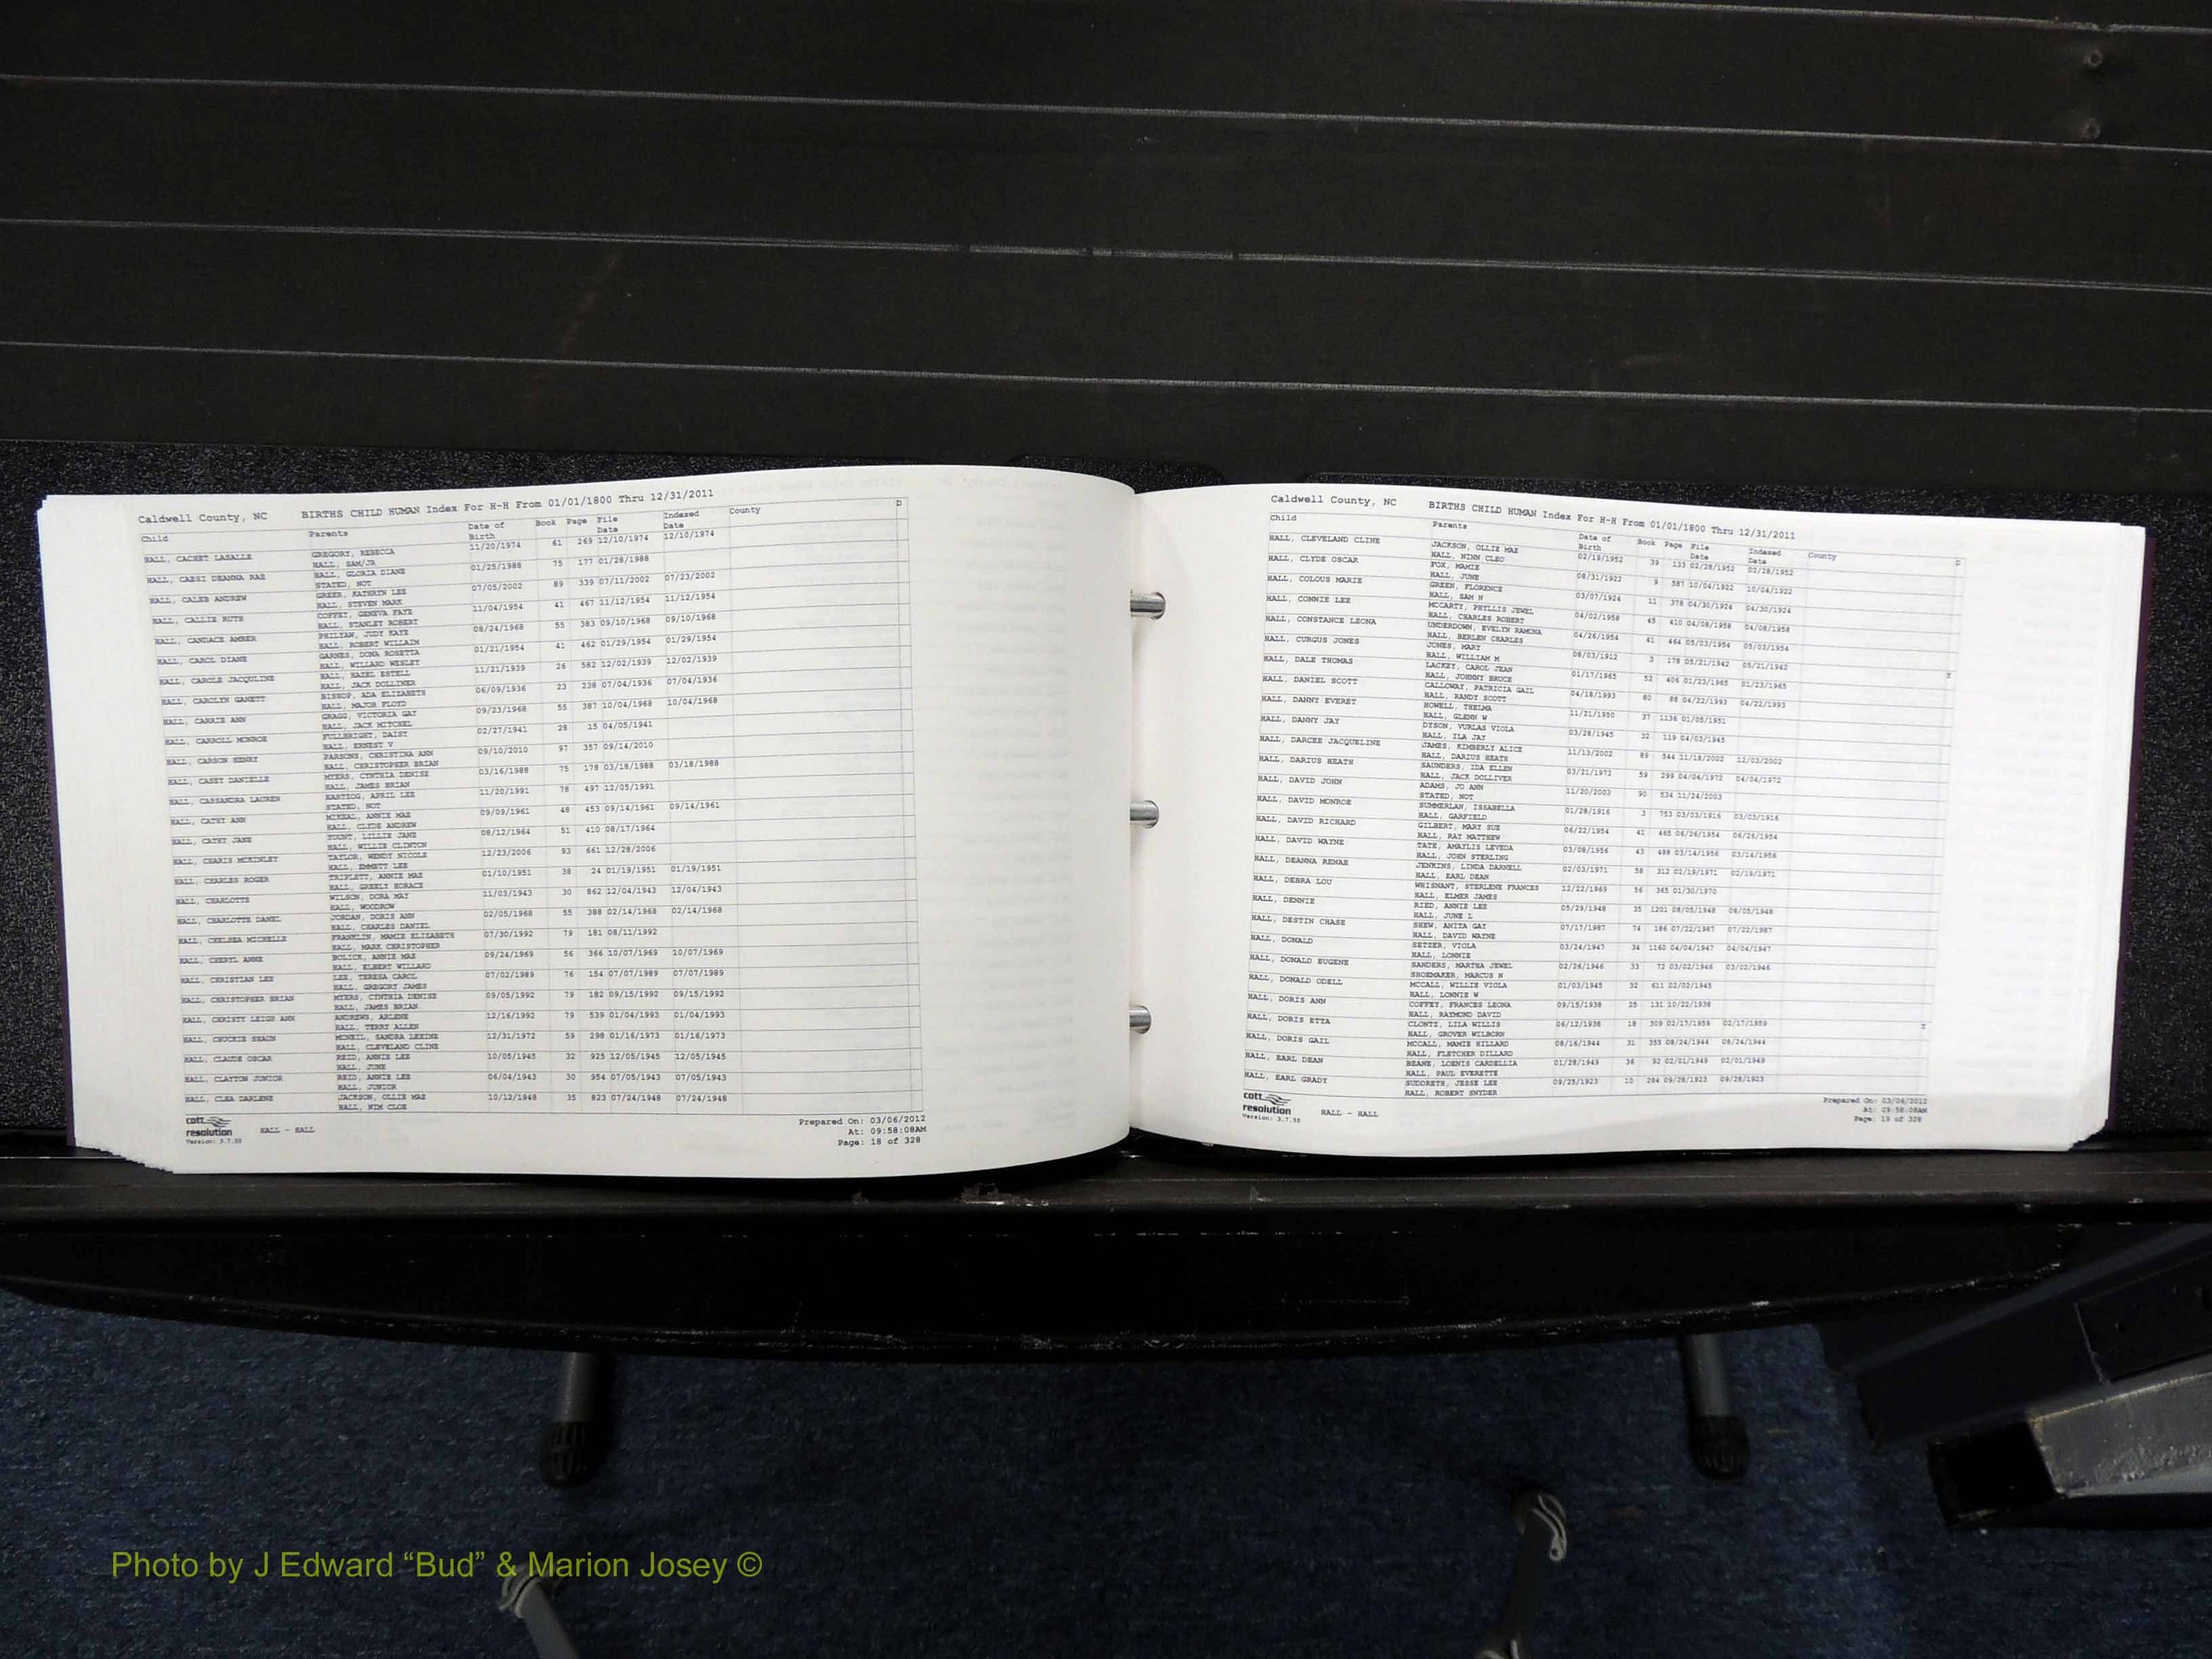 Caldwell County, NC BIRTHS CHILD HUMAN Index For H-H From 01/01/1800 Thru 12/31/2011
Child Parents Date of Birth Book Page File Date Indexed Date County D
HALL, CACHET LASALLE GREGORY, REBECCA 11/20/1974 61 269 12/10/1974 12/10/1974
HALL, SAM/JR
HALL, CAESI DEANNA RAE HALL, GLORIA DIANE 01/25/1988 75 177 01/28/1988
STATED, NOT
HALL, CALEB ANDREW GREER, KATHRYN LEE 07/05/2002 89 339 07/11/2002 07/23/2002
HALL, STEVEN MARK
HALL, CALLIE RUTH COFFEY, GENEVA FAYE 11/04/1954 41 467 11/12/1954 11/12/1954
HALL, STANLEY ROBERT
HALL, CANDACE AMBER PHILYAW, JUDY KAYE 08/24/1968 55 383 09/10/1968 09/10/1968
HALL, ROBERT WILLAIM
HALL, CAROL DIANE GARNES, DONA ROSETTA 01/21/1954 41 462 01/29/1954 01/29/1954
HALL, WILLARD WESLEY
HALL, CAROLE JACQULINE HALL, HAZEL ESTELL 11/21/1939 26 582 12/02/1939 12/02/1939
HALL, JACK DOLLINER
HALL, CAROLYN GANETT BISHOP, ADA ELIZABETH 06/09/1936 23 238 07/04/1936 07/04/1936
HALL, MAJOR FLOYD
HALL, CARRIE ANN GRAGG, VICTORIA GAY 09/23/1968 55 387 10/04/1968 10/04/1968
HALL, JACK MITCHEL
HALL, CARROLL MONROE FULLBRIGHT, DAISY 02/27/1941 28 15 04/05/1941
HALL, ERNEST V
HALL, CARSON HENRY PARSONS, CHRISTINA ANN 09/10/2010 97 357 09/14/2010
HALL, CHRISTOPHER BRIAN
HALL, CASEY DANIELLE MYERS, CYNTHIA DENISE 03/16/1988 75 178 03/18/1988 03/18/1988
HALL, JAMES BRIAN
HALL, CASSANDRA LAUREN HARTZOG, APRIL LEE 11/20/1991 78 497 12/05/1991
STATED, NOT
HALL, CATHY ANN MIKEAL, ANNIE MAE 09/09/1961 48 453 09/14/1961 09/14/1961
HALL, CLYDE ANDREW
HALL, CATHY JANE YOUNT, LILLIE JANE 08/12/1964 51 410 08/17/1964
HALL, WILLIE CLINTON
HALL, CHARIS MCKINLEY TAYLOR, WENDY NICOLE 12/23/2006 93 661 12/28/2006
HALL, EMMETT LEE
HALL, CHARLES ROGER TRIPLETT, ANNIE MAE 01/10/1951 38 24 01/19/1951 01/19/1951
HALL, GREELY HORACE
HALL, CHARLOTTE WILSON, DORA MAY 11/03/1943 30 862 12/04/1943 12/04/1943
HALL, WOODROW
HALL, CHARLOTTE DANEL JORDAN, DORIS ANN 02/05/1968 55 388 02/14/1968 02/14/1968
HALL, CHARLES DANIEL
HALL, CHELSEA MICHELLE FRANKLIN, MAMIE ELIZABETH 07/30/1992 79 181 08/11/1992
HALL, MARK CHRISTOPHER
HALL, CHERYL ANNE BOLICK, ANNIE MAE 09/24/1969 56 366 10/07/1969 10/07/1969
HALL, ELBERT WILLARD
HALL, CHRISTIAN LEE LEE, TERESA CAROL 07/02/1989 76 154 07/07/1989 07/07/1989
HALL, GREGORY JAMES
HALL, CHRISTOPHER BRIAN MYERS, CYNTHIA DENISE 09/05/1992 79 182 09/15/1992 09/15/1992
HALL, JAMES BRIAN
HALL, CHRISTY LEIGH ANN ANDREWS, ARLENE 12/16/1992 79 539 01/04/1993 01/04/1993
HALL, TERRY ALLEN
HALL, CHUCKIE SHAUN MCNEIL, SANDRA LEXINE 12/31/1972 59 298 01/16/1973 01/16/1973
HALL, CLEVELAND CLINE
HALL, CLAUDE OSCAR REID, ANNIE LEE 10/05/1945 32 925 12/05/1945 12/05/1945
HALL, JUNE
HALL, CLAYTON JUNIOR REID, ANNIE LEE 06/04/1943 30 954 07/05/1943 07/05/1943
HALL, JUNIOR
HALL, CLEA DARLENE JACKSON, OLLIE MAE 10/12/1948 35 823 07/24/1948 07/24/1948
HALL, NIM CLOE
cott resolution Version: 3.7.50
HALL - HALL
Prepared On: 03/06/2012
At: 09:58:08AM
Page: 18 of 328
Caldwell County, NC BIRTHS CHILD HUMAN Index For H-H From 01/01/1800 Thru 12/31/2011
Child Parents Date of Birth Book Page File Date Indexed Date County D
HALL, CLEVELAND CLINE JACKSON, OLLIE MAE 02/19/1952 39 133 02/28/1952 02/28/1952
HALL, NINN CLEO
HALL, CLYDE OSCAR FOX, MAMIE 08/31/1922 9 587 10/04/1922 10/04/1922
HALL, JUNE
HALL, COLOUS MARIE GREEN, FLORENCE 03/07/1924 11 378 04/30/1924 04/30/1924
HALL, SAM H
HALL, CONNIE LEE MCCARTY, PHYLLIS JEWEL 04/02/1958 45 410 04/08/1958 04/08/1958
HALL, CHARLES ROBERT
HALL, CONSTANCE LEONA UNDERDOWN, EVELYN RAMONA 04/26/1954 41 464 05/03/1954 05/03/1954
HALL, BERLEN CHARLES
HALL, CURGUS JONES JONES, MARY 08/03/1912 3 178 05/21/1942 05/21/1942
HALL, WILLIAM M
HALL, DALE THOMAS LACKEY, CAROL JEAN 01/17/1965 52 406 01/23/1965 01/23/1965
HALL, JOHNNY BRUCE
HALL, DANIEL SCOTT CALLOWAY, PATRICIA GAIL 04/18/1993 80 88 04/22/1993 04/22/1993
HALL, RANDY SCOTT
HALL, DANNY EVERET HOWELL, THELMA 11/21/1950 37 1136 01/05/1951
HALL, GLENN W
HALL, DANNY JAY DYSON, VURLAS VIOLA 03/28/1945 32 119 04/03/1945
HALL, ILA JAY
HALL, DARCEE JACQUELINE JAMES, KIMBERLY ALICE 11/13/2002 89 544 11/18/2002 12/03/2002
HALL, DARIUS HEATH
HALL, DARIUS HEATH SAUNDERS, IDA ELLEN 03/21/1972 59 299 04/04/1972 04/04/1972
HALL, JACK DOLLIVER
HALL, DAVID JOHN ADAMS, JO ANN 11/20/2003 90 534 11/24/2003
STATED, NOT
HALL, DAVID MONROE SUMMERLAN, ISSABELLA 01/28/1916 3 753 03/03/1916 03/03/1916
HALL, GARFIELD
HALL, DAVID RICHARD GILBERT, MARY SUE 06/22/1954 41 465 06/26/1954 06/26/1954
HALL, RAY MATTHEW
HALL, DAVID WAYNE TATE, AMAYLIS LEVEDA 03/08/1956 43 498 03/14/1956 03/14/1956
HALL, JOHN STERLING
HALL, DEANNA RENAE JENKINS, LINDA DARNELL 02/03/1971 58 312 02/19/1971 02/19/1971
HALL, EARL DEAN
HALL, DEBRA LOU WHISNANT, STERLENE FRANCES 12/22/1969 56 365 01/30/1970
HALL, ELMER JAMES
HALL, DENNIE RIED, ANNIE LEE 05/29/1948 35 1201 08/05/1948 08/05/1948
HALL, JUNE L
HALL, DESTIN CHASE SHEW, ANITA GAY 07/17/1987 74 186 07/22/1987 07/22/1987
HALL, DAVID WAYNE
HALL, DONALD SETZER, VIOLA 03/24/1947 34 1160 04/04/1947 04/04/1947
HALL, LONNIE
HALL, DONALD EUGENE SANDERS, MARTHA JEWEL 02/26/1946 33 72 03/02/1946 03/02/1946
SHOEMAKER, MARCUS N
HALL, DONALD ODELL MCCALL, WILLIE VIOLA 01/03/1945 32 611 02/02/1945
HALL, LONNIE W
HALL, DORIS ANN COFFEY, FRANCES LEONA 09/15/1938 25 131 10/22/1938
HALL, RAYMOND DAVID
HALL, DORIS ETTA CLONTZ, LILA WILLIS 06/12/1938 18 309 02/17/1959 02/17/1959
HALL, GROVER WILBORN
HALL, DORIS GAIL MCCALL, MAMIE HILLARD 08/16/1944 31 353 08/24/1944 08/24/1944
HALL, FLETCHER DILLARD
HALL, EARL DEAN BEANE, LOENIS CARDELLIA 01/28/1949 36 92 02/01/1949 02/01/1949
HALL, PAUL EVERETTE
HALL, EARL GRADY SUDDRETH, JESSE LEE 09/25/1923 10 284 09/28/1923 09/28/1923
HALL, ROBERT SNYDER
cott resolution Version: 3.7.50
HALL - HALL
Prepared On: 03/06/2012
At: 09:58:08AM
Page: 19 of 328
Photo by J Edward “Bud” & Marion Josey ©